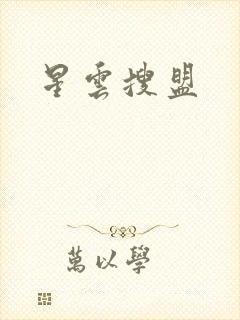 星雲搜盟
萬以學